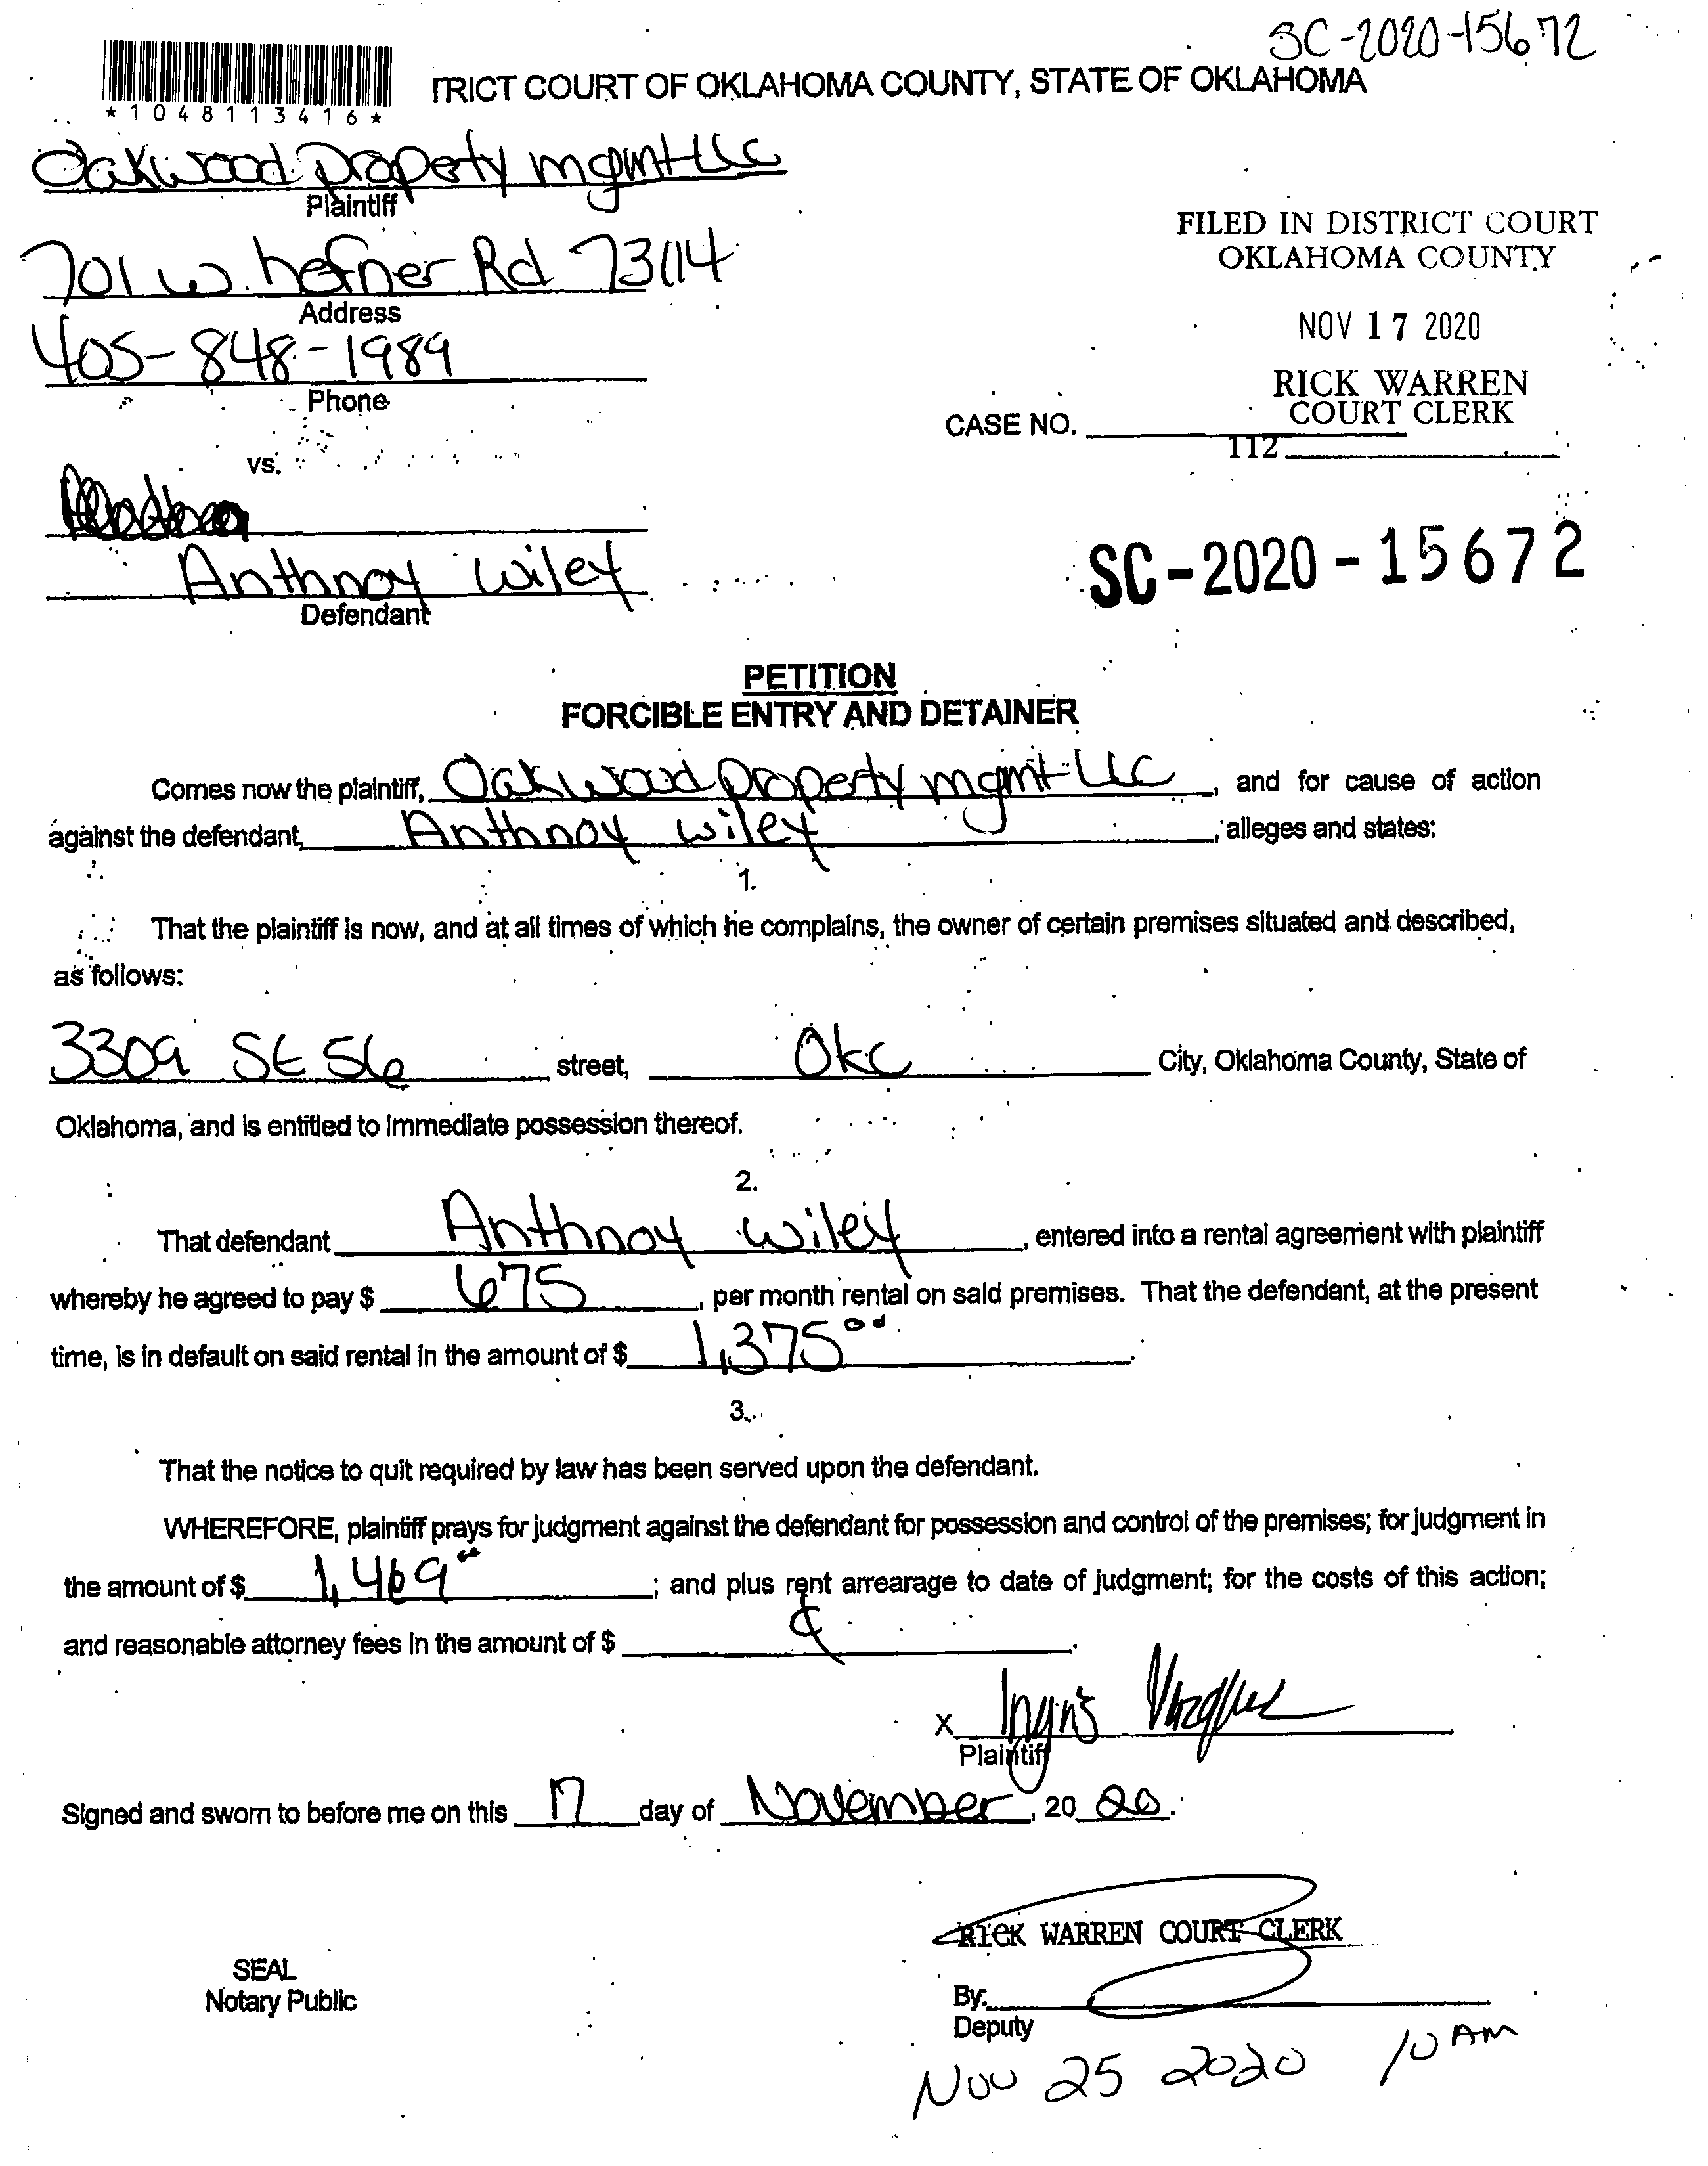 SC-2020-15672
TRICT COURT OF OKLAHOMA COUNTY, STATE OF OKLAHOMA
*1048113416*
Oakwood Property mgmt LLC
Plaintiff
701 W. hefner Rd 73114
Address
405-848-1989
Phone
FILED IN DISTRICT COURT
OKLAHOMA COUNTY
NOV 17 2020
RICK WARREN
COURT CLERK
CASE NO.
112
vs.
Anthnoy Wiley
Defendant
SC-2020-15672
PETITION
FORCIBLE ENTRY AND DETAINER
Comes now the plaintiff, Oakwood Property mgmt LLC, and for cause of action
against the defendant, Anthnoy Wiley, alleges and states:
1.
That the plaintiff is now, and at all times of which he complains, the owner of certain premises situated and described,
as follows:
3309 SE 56 street, OKC City, Oklahoma County, State of
Oklahoma, and is entitled to immediate possession thereof.
2.
That defendant Anthnoy Wiley, entered into a rental agreement with plaintiff
whereby he agreed to pay $ 675, per month rental on said premises. That the defendant, at the present
time, is in default on said rental in the amount of $ 1,375.00.
3.
That the notice to quit required by law has been served upon the defendant.
WHEREFORE, plaintiff prays for judgment against the defendant for possession and control of the premises; for judgment in
the amount of $ 1,469.00; and plus rent arrearage to date of judgment; for the costs of this action;
and reasonable attorney fees in the amount of $
X
Plaintiff
Signed and sworn to before me on this 17 day of November, 20 20.
RICK WARREN COURT CLERK
SEAL
Notary Public
By:
Deputy
Nov 25 2020 10 AM